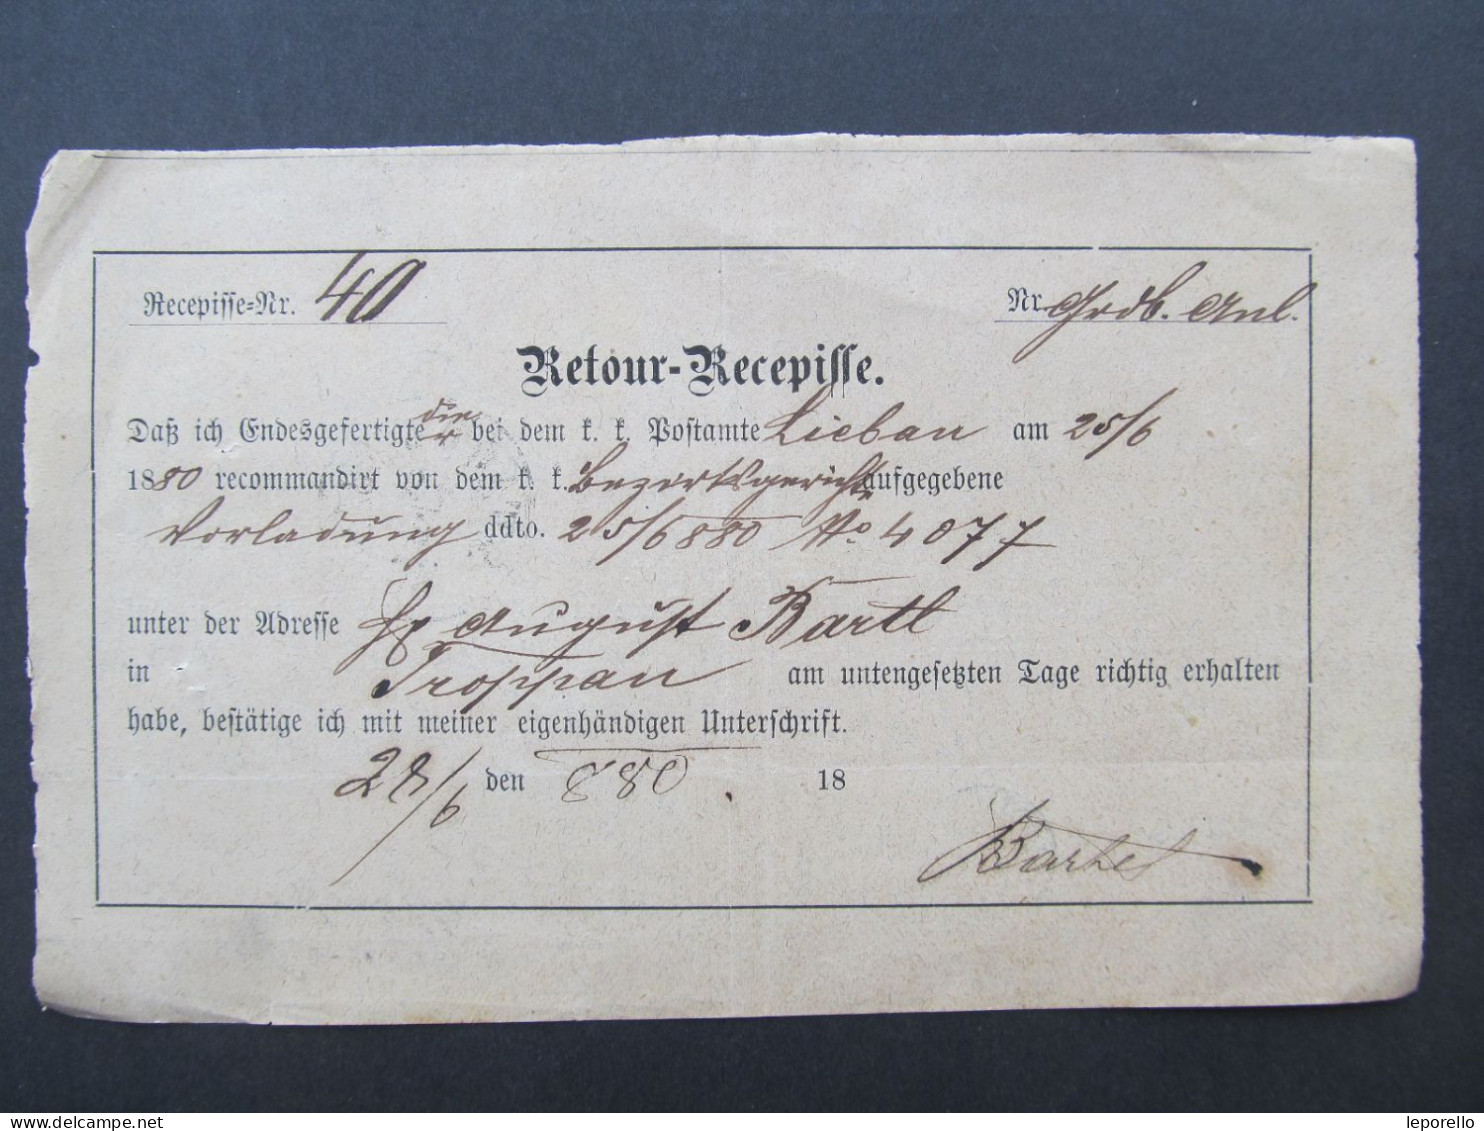 Recepisse-Nr. 40
Nr. Grdb. Anl.
Retour-Recepisse.
Daß ich Endesgefertigter die bei dem k. k. Postamte Liebau am 25/6
1880 recommandirt von dem k. k. Bezirksgerichte aufgegebene
Vorladung ddto. 25/6 880 No 4077
unter der Adresse August Bartl
in Troppau am untengesetzten Tage richtig erhalten
habe, bestätige ich mit meiner eigenhändigen Unterschrift.
28/6 den 880 18
Bartel
leporello